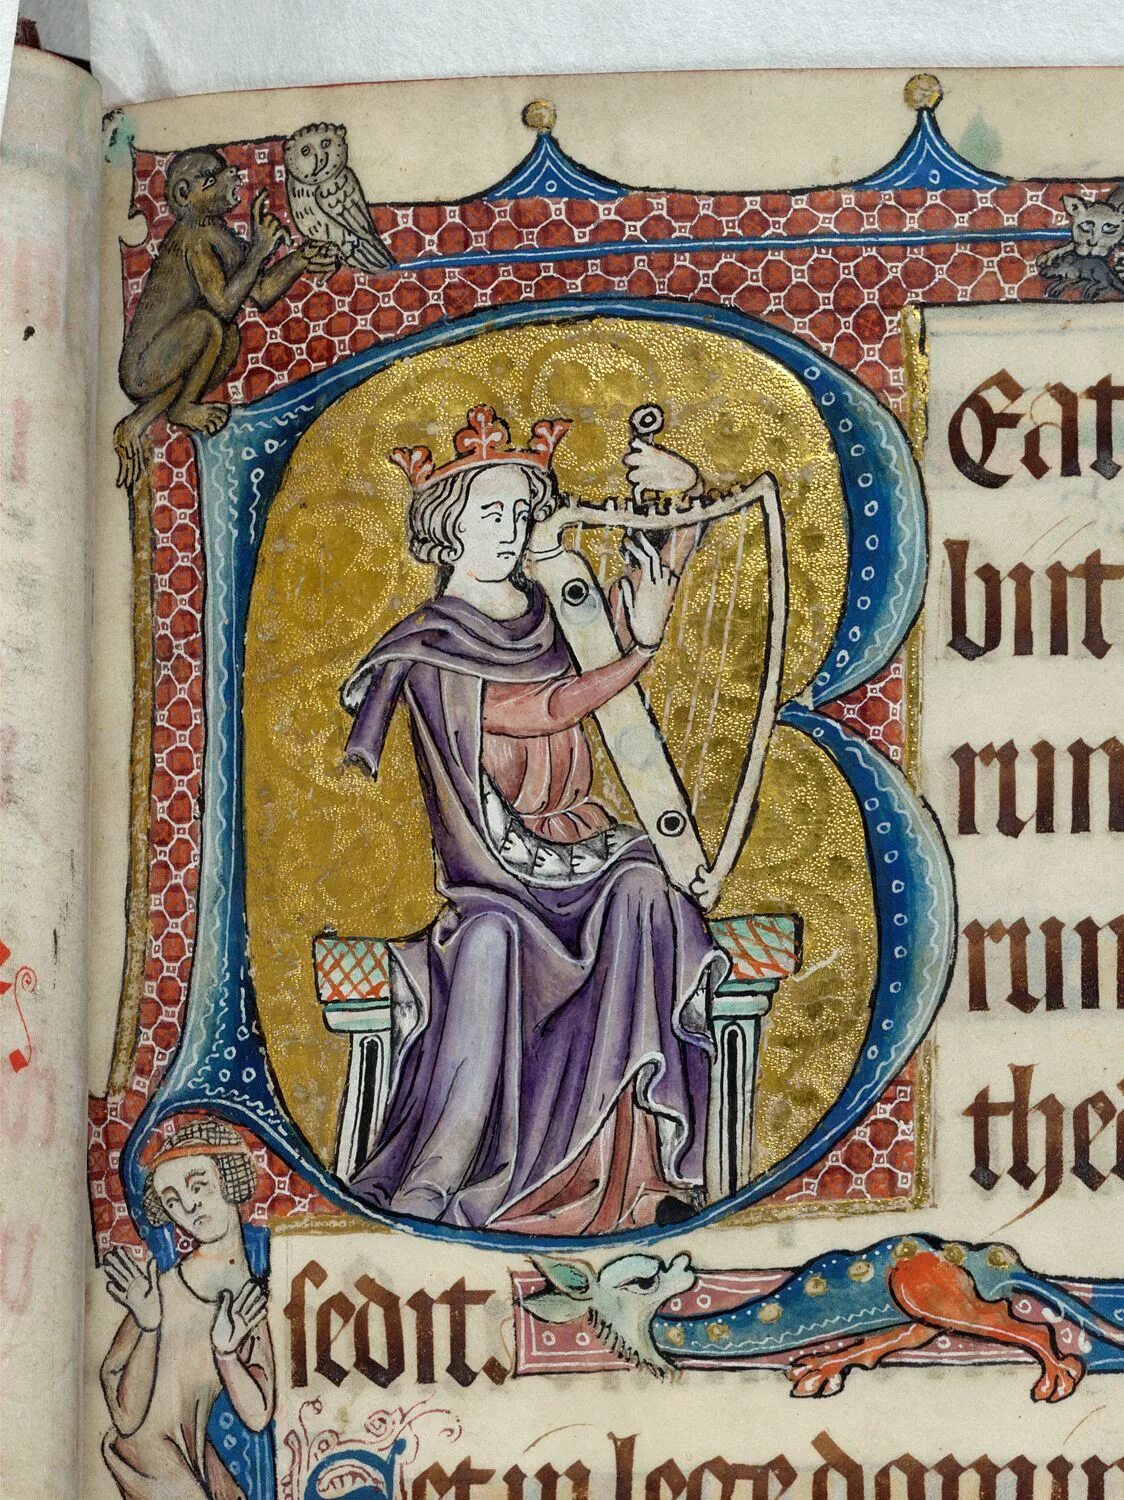 B Eat
biit
run
run
thei
sedit.
Et in lege domin